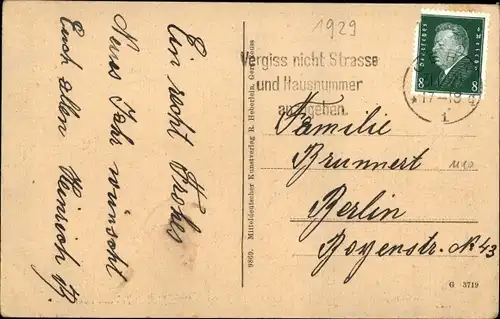 Ein recht Frohes
Neues Jahr wünscht
Euch allen Heinrich
9860. Mitteldeutscher Kunstverlag R. Heberlein, Gera-Reuss
1929
Vergiss nicht Strasse
und Hausnummer
anzugeben.
Deutsches Reich
8 8
*17-18
Familie
Brunnert
Berlin
Boyenstr. N 43
G 3719